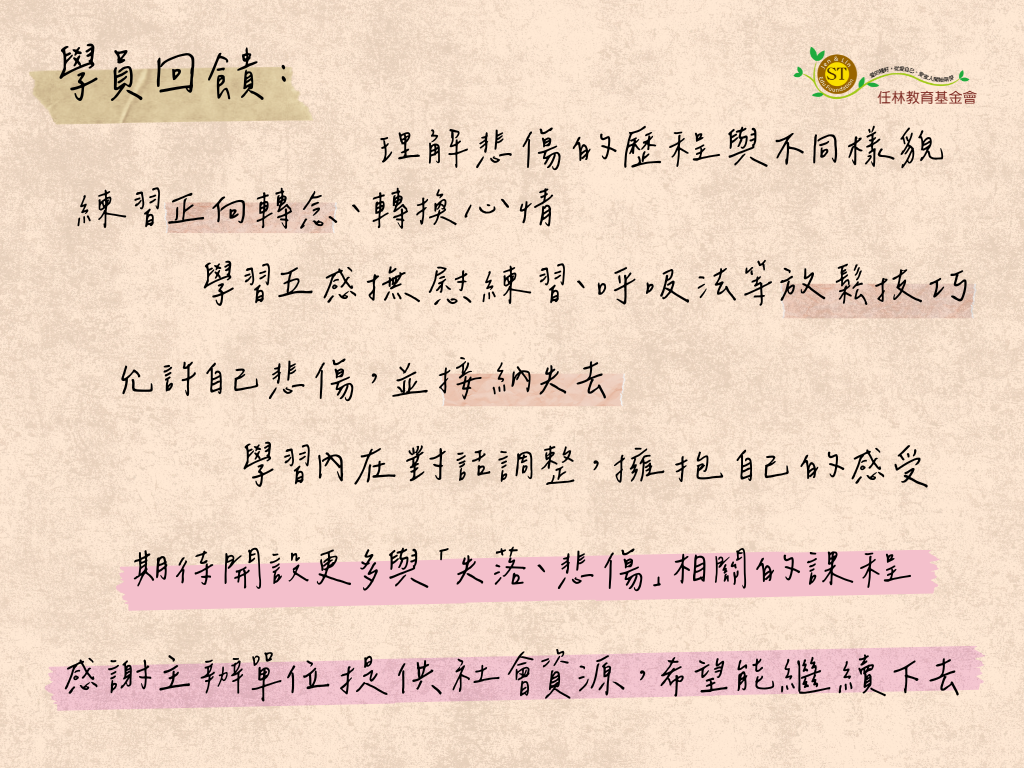 學員回饋：
任林教育基金會
ST
理解悲傷的歷程與不同樣貌
練習正向轉念、轉換心情
學習五感撫慰練習、呼吸法等放鬆技巧
允許自己悲傷，並接納失去
學習內在對話調整，擁抱自己的感受
期待開設更多與「失落、悲傷」相關的課程
感謝主辦單位提供社會資源，希望能繼續下去